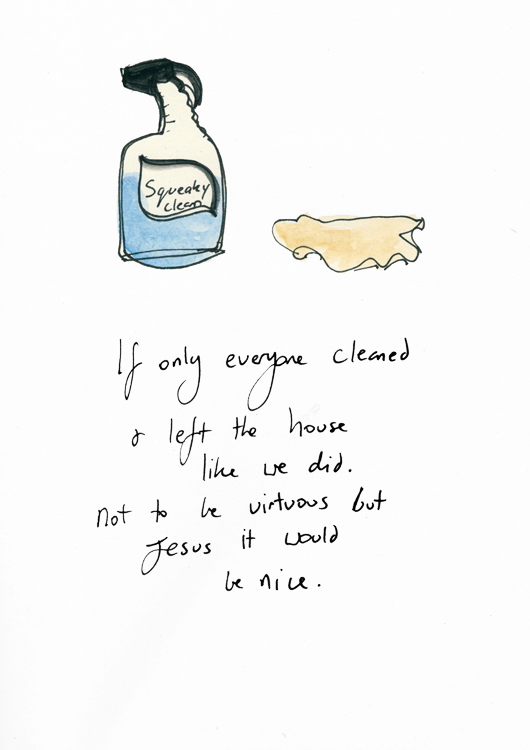 Squeaky
clean
If only everyone cleaned
& left the house
like we did.
not to be virtuous but
Jesus it would
be nice.